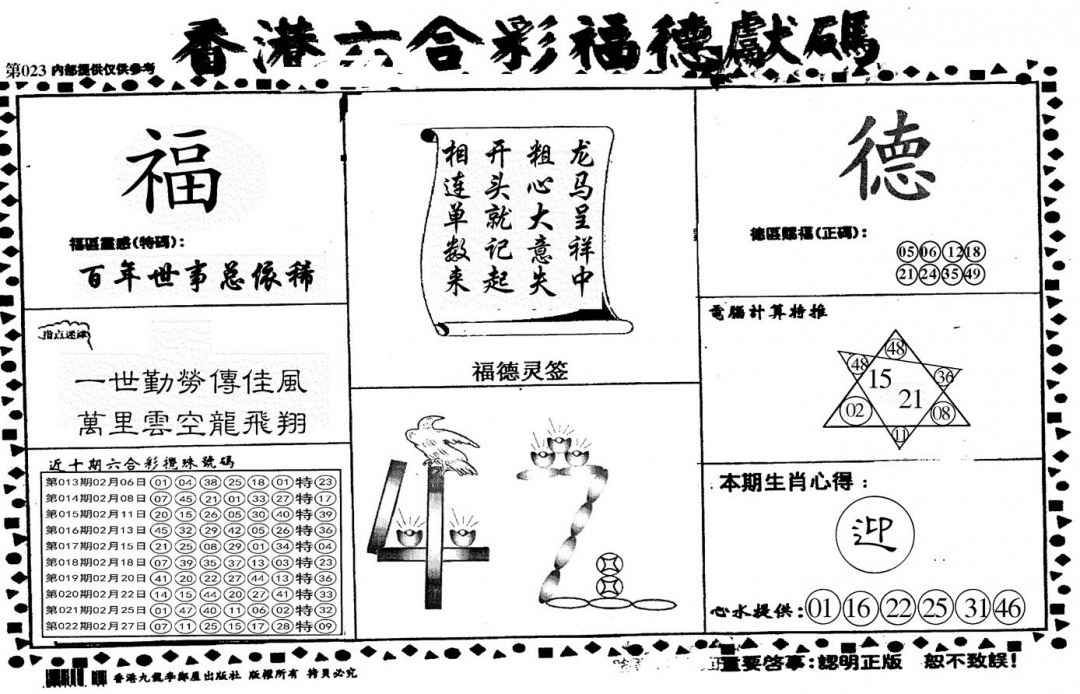 香港六合彩福德獻碼
第023 内部提供仅供参考
福
福區靈感(特碼):
百年世事总依稀
指点迷津
一世勤勞傳佳風
萬里雲空龍飛翔
近十期六合彩攪珠號碼
第013期02月06日 01 04 38 25 18 01 特 23
第014期02月08日 07 45 21 01 33 27 特 17
第015期02月11日 20 15 26 05 30 40 特 39
第016期02月13日 45 32 29 42 05 26 特 36
第017期02月15日 21 25 08 29 01 34 特 04
第018期02月18日 07 39 35 37 13 03 特 23
第019期02月20日 41 20 22 27 44 13 特 36
第020期02月22日 14 15 44 20 27 41 特 33
第021期02月25日 01 47 40 11 06 02 特 32
第022期02月27日 07 11 25 15 17 28 特 09
龙马呈祥中
粗心大意失
开头就记起
相连单数来
福德灵签
42
德
德區賜福(正碼):
05 06 12 18
21 24 35 49
電腦計算特推
48
48 36
15 21
02 08
11
本期生肖心得:
迎
心水提供: 01 16 22 25 31 46
香港九龍李鄭屋出版社 版權所有 拷貝必究
重要啓事:認明正版 恕不致誤!